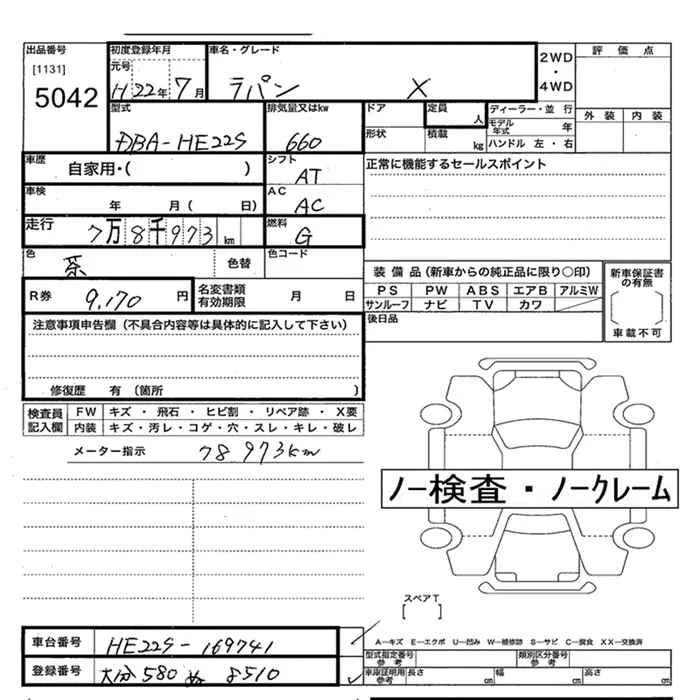 出品番号
[1131]
5042
初度登録年月
元号
H22年7月
車名・グレード
ラパン X
2WD
・
4WD
評価点
外装 内装
型式
DBA-HE22S
排気量又はkw
660
ドア
形状
定員
人
積載
kg
ディーラー・並行
モデル年式 年
ハンドル 左・右
車歴
自家用・( )
シフト
AT
正常に機能するセールスポイント
車検
年 月( 日)
AC
AC
走行
7万8千973km
燃料
G
色
茶
色替
色コード
R券
9,170円
名変書類有効期限 月 日
装備品(新車からの純正品に限り○印)
PS PW ABS エアB アルミW
サンルーフ ナビ TV カワ
新車保証書の有無
車載不可
後日品
注意事項申告欄(不具合内容等は具体的に記入して下さい)
修復歴 有(箇所 )
検査員記入欄
FW キズ・飛石・ヒビ割・リペア跡・X要
内装 キズ・汚レ・コゲ・穴・スレ・キレ・破レ
メーター指示 78973km
ノー検査・ノークレーム
スペアT
[ ]
車台番号 HE22S-169741
登録番号 大分580ぬ8510
A―キズ E―エクボ U―凹み W―補修跡 S―サビ C―腐食 XX―交換済
型式指定番号参考
類別区分番号参考
車庫証明用参考 長さ cm 幅 cm 高さ cm